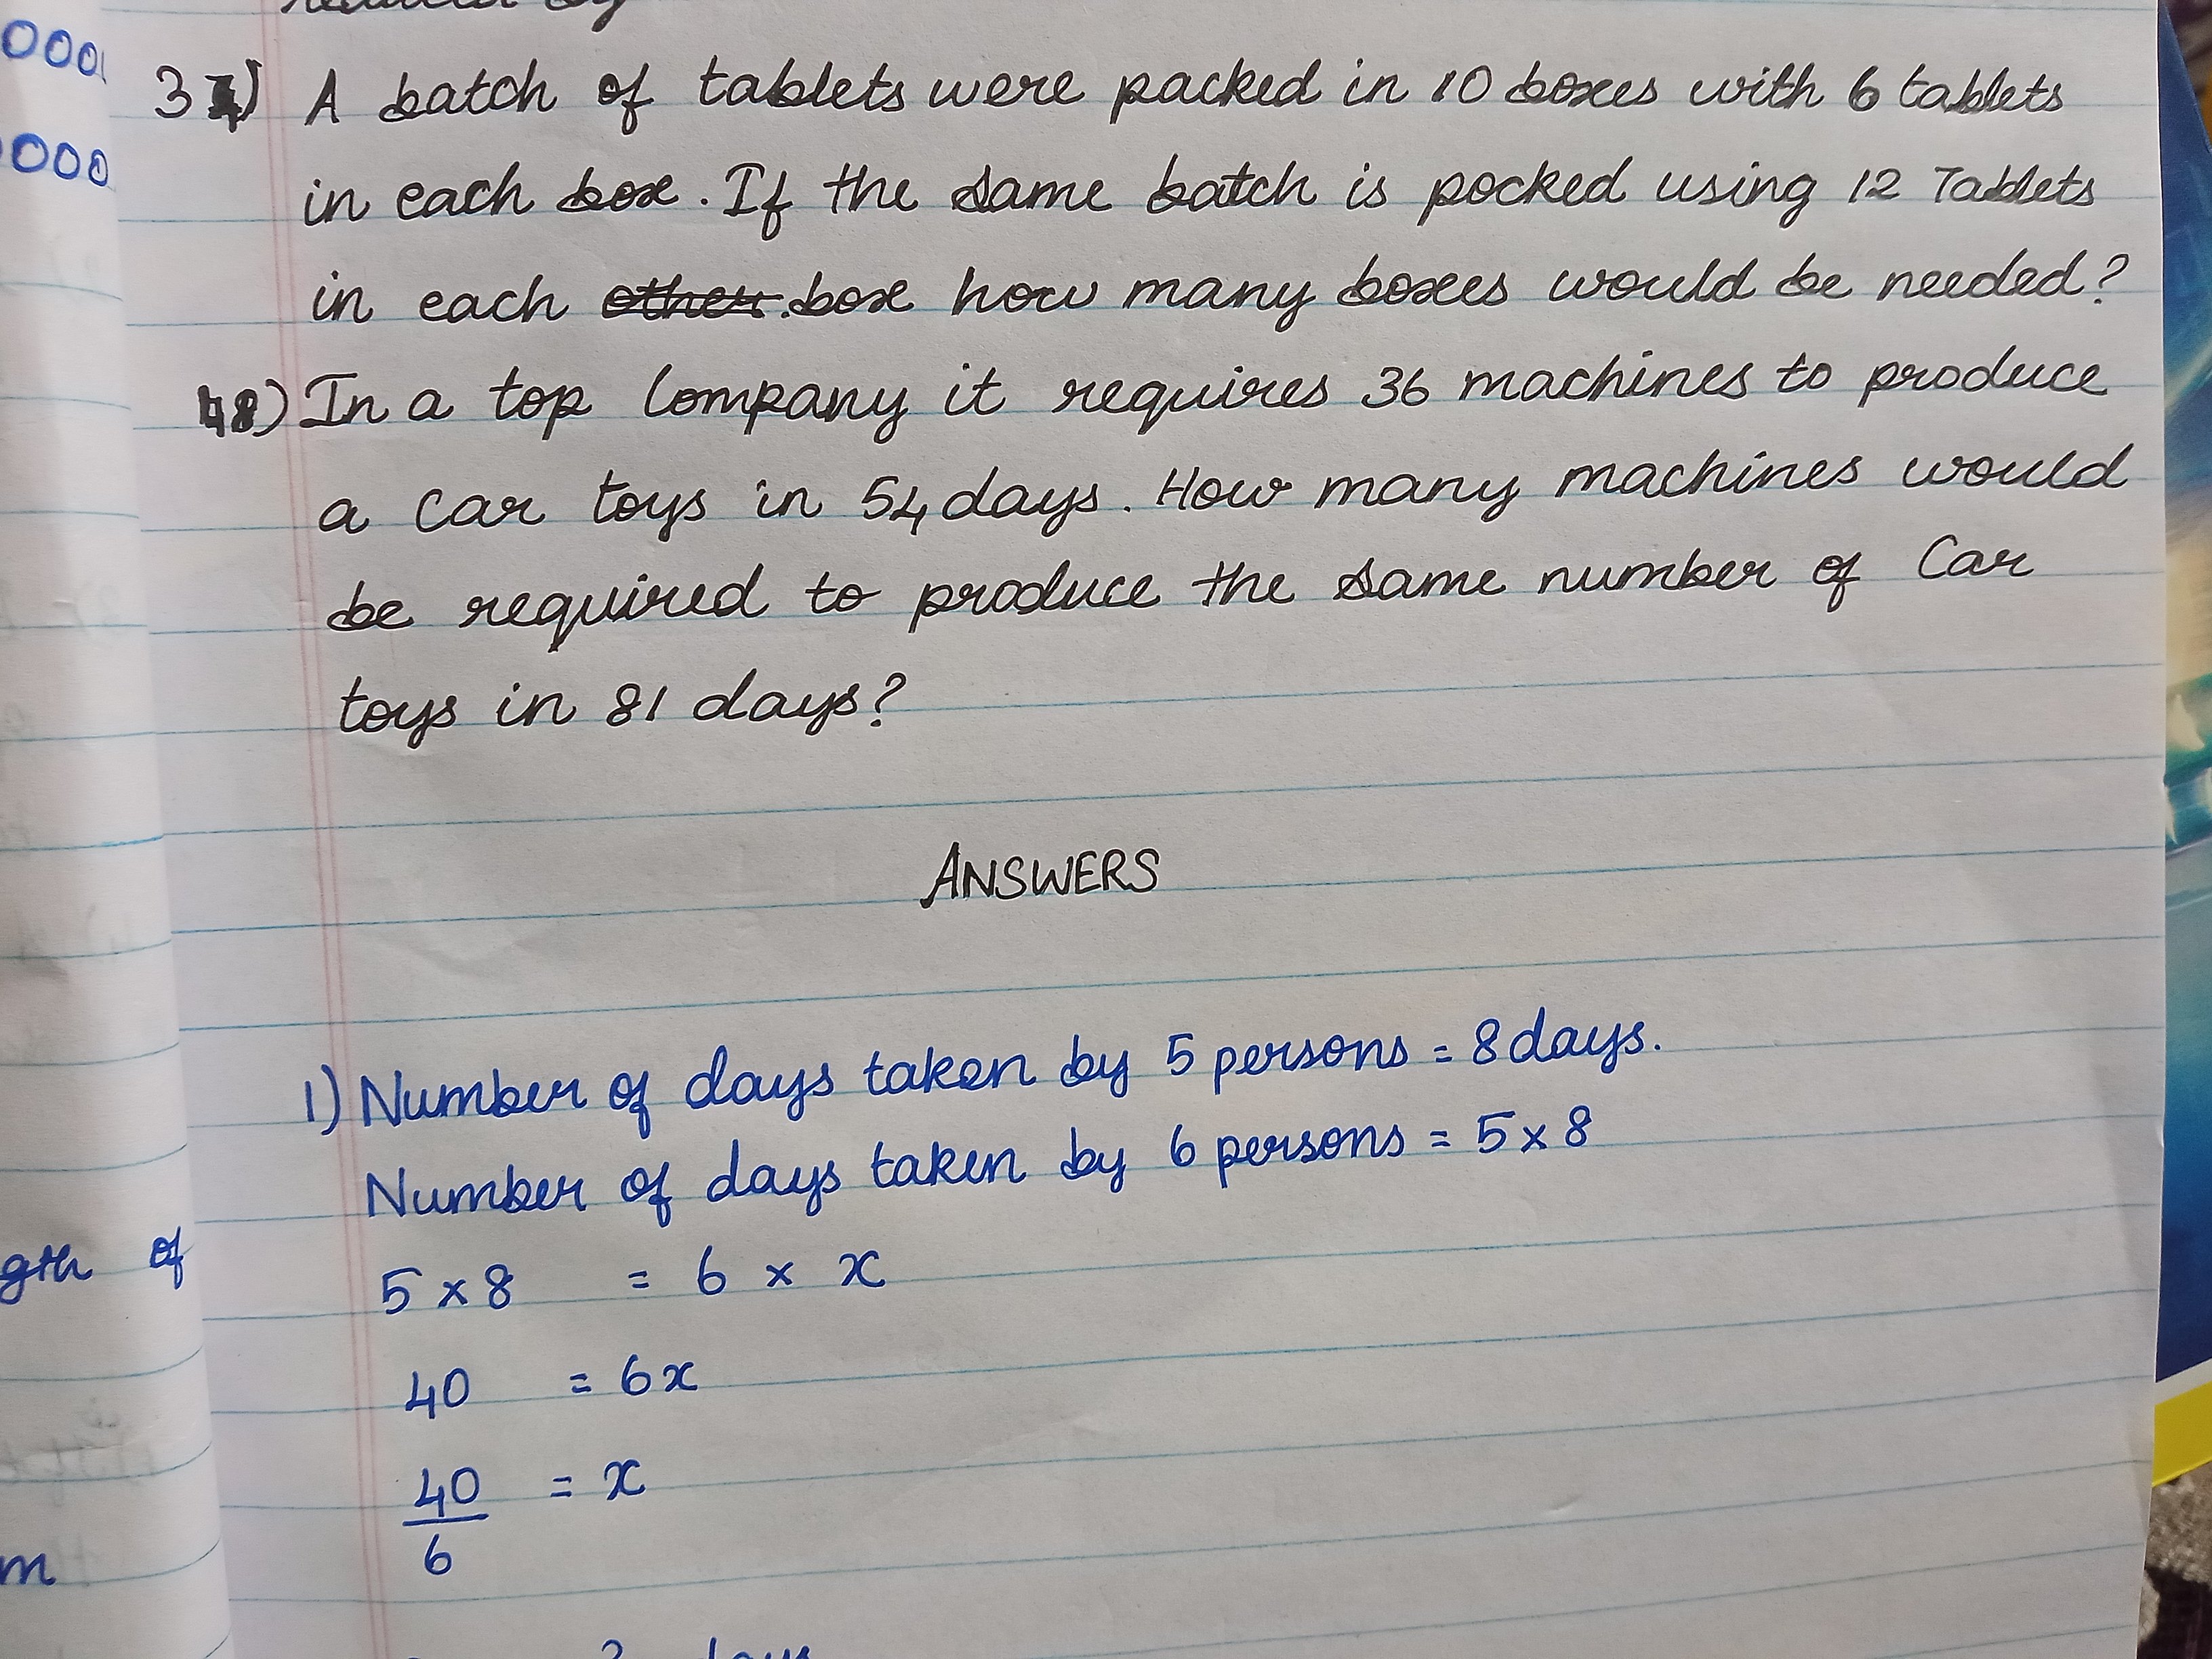 0000
0000
3) A batch of tablets were packed in 10 boxes with 6 tablets
in each box. If the same batch is pocked using 12 Tablets
in each other box how many boxes would be needed?
48) In a top Company it requires 36 machines to produce
a car toys in 54 days. How many machines would
be required to produce the same number of Car
toys in 81 days?
ANSWERS
1) Number of days taken by 5 persons = 8 days.
Number of days taken by 6 persons = 5 x 8
5 x 8 = 6 x x
40 = 6x
40 = x
6
gth of
m